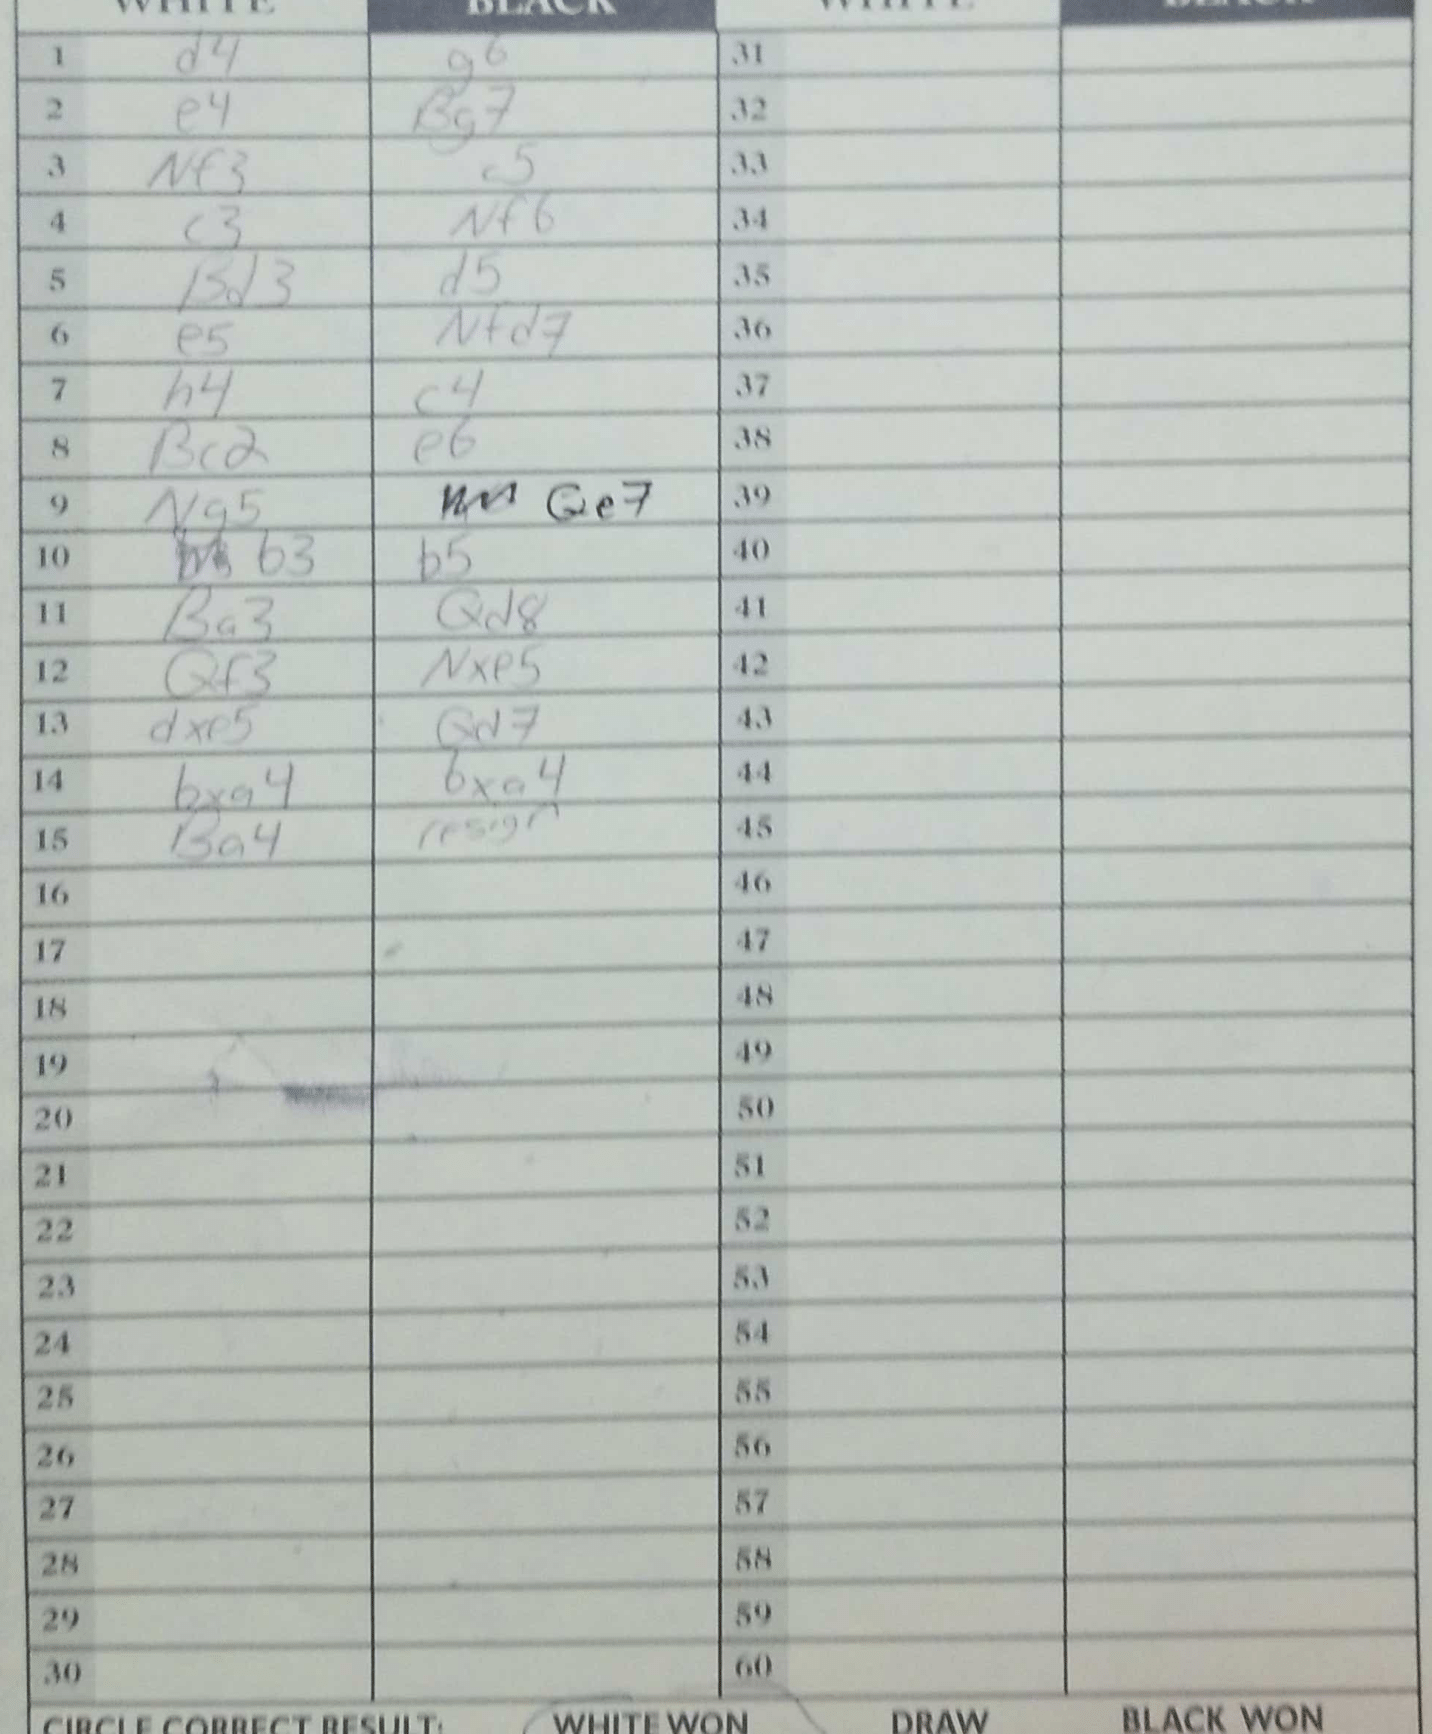 WHITE BLACK WHITE BLACK
1 d4 g6 31
2 e4 Bg7 32
3 Nf3 c5 33
4 c3 Nf6 34
5 Bd3 d5 35
6 e5 Nfd7 36
7 h4 c4 37
8 Bc2 e6 38
9 Ng5 Qe7 39
10 b3 b5 40
11 Ba3 Qd8 41
12 Qf3 Nxe5 42
13 dxe5 Qd7 43
14 bxa4 bxa4 44
15 Ba4 resign 45
16 46
17 47
18 48
19 49
20 50
21 51
22 52
23 53
24 54
25 55
26 56
27 57
28 58
29 59
30 60
CIRCLE CORRECT RESULT: WHITE WON DRAW BLACK WON